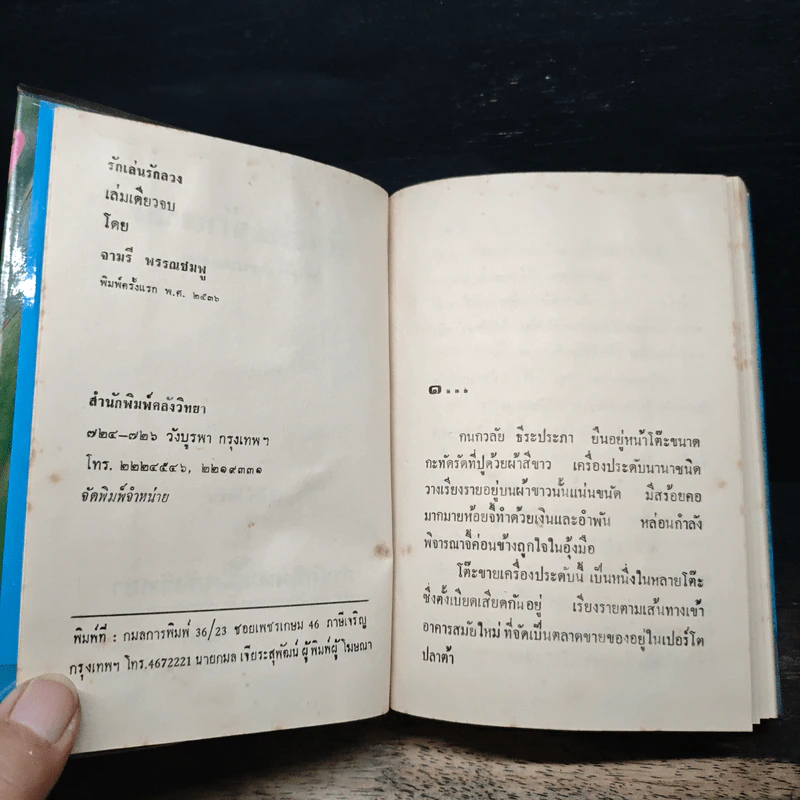 รักเล่นรักลวง
เล่มเดียวจบ
โดย
จามรี พรรณชมพู
พิมพ์ครั้งแรก พ.ศ. ๒๕๓๖
สำนักพิมพ์คลังวิทยา
๗๒๔—๗๒๖ วังบูรพา กรุงเทพฯ
โทร. ๒๒๒๔๕๔๖, ๒๒๑๙๓๓๑
จัดพิมพ์จำหน่าย
พิมพ์ที่ : กมลการพิมพ์ 36/23 ซอยเพชรเกษม 46 ภาษีเจริญ
กรุงเทพฯ โทร.4672221 นายกมล เจียระสุพัฒน์ ผู้พิมพ์ผู้โฆษณา
๑...
กนกวลัย ธีระประภา ยืนอยู่หน้าโต๊ะขนาด
กะทัดรัดที่ปูด้วยผ้าสีขาว เครื่องประดับนานาชนิด
วางเรียงรายอยู่บนผ้าขาวนั้นแน่นขนัด มีสร้อยคอ
มากมายห้อยจี้ทำด้วยเงินและอำพัน หล่อนกำลัง
พิจารณาจี้ค่อนข้างถูกใจในอุ้งมือ
โต๊ะขายเครื่องประดับนี้ เป็นหนึ่งในหลายโต๊ะ
ซึ่งตั้งเบียดเสียดกันอยู่ เรียงรายตามเส้นทางเข้า
อาคารสมัยใหม่ ที่จัดเป็นตลาดขายของอยู่ในเปอร์โต
ปลาต้า